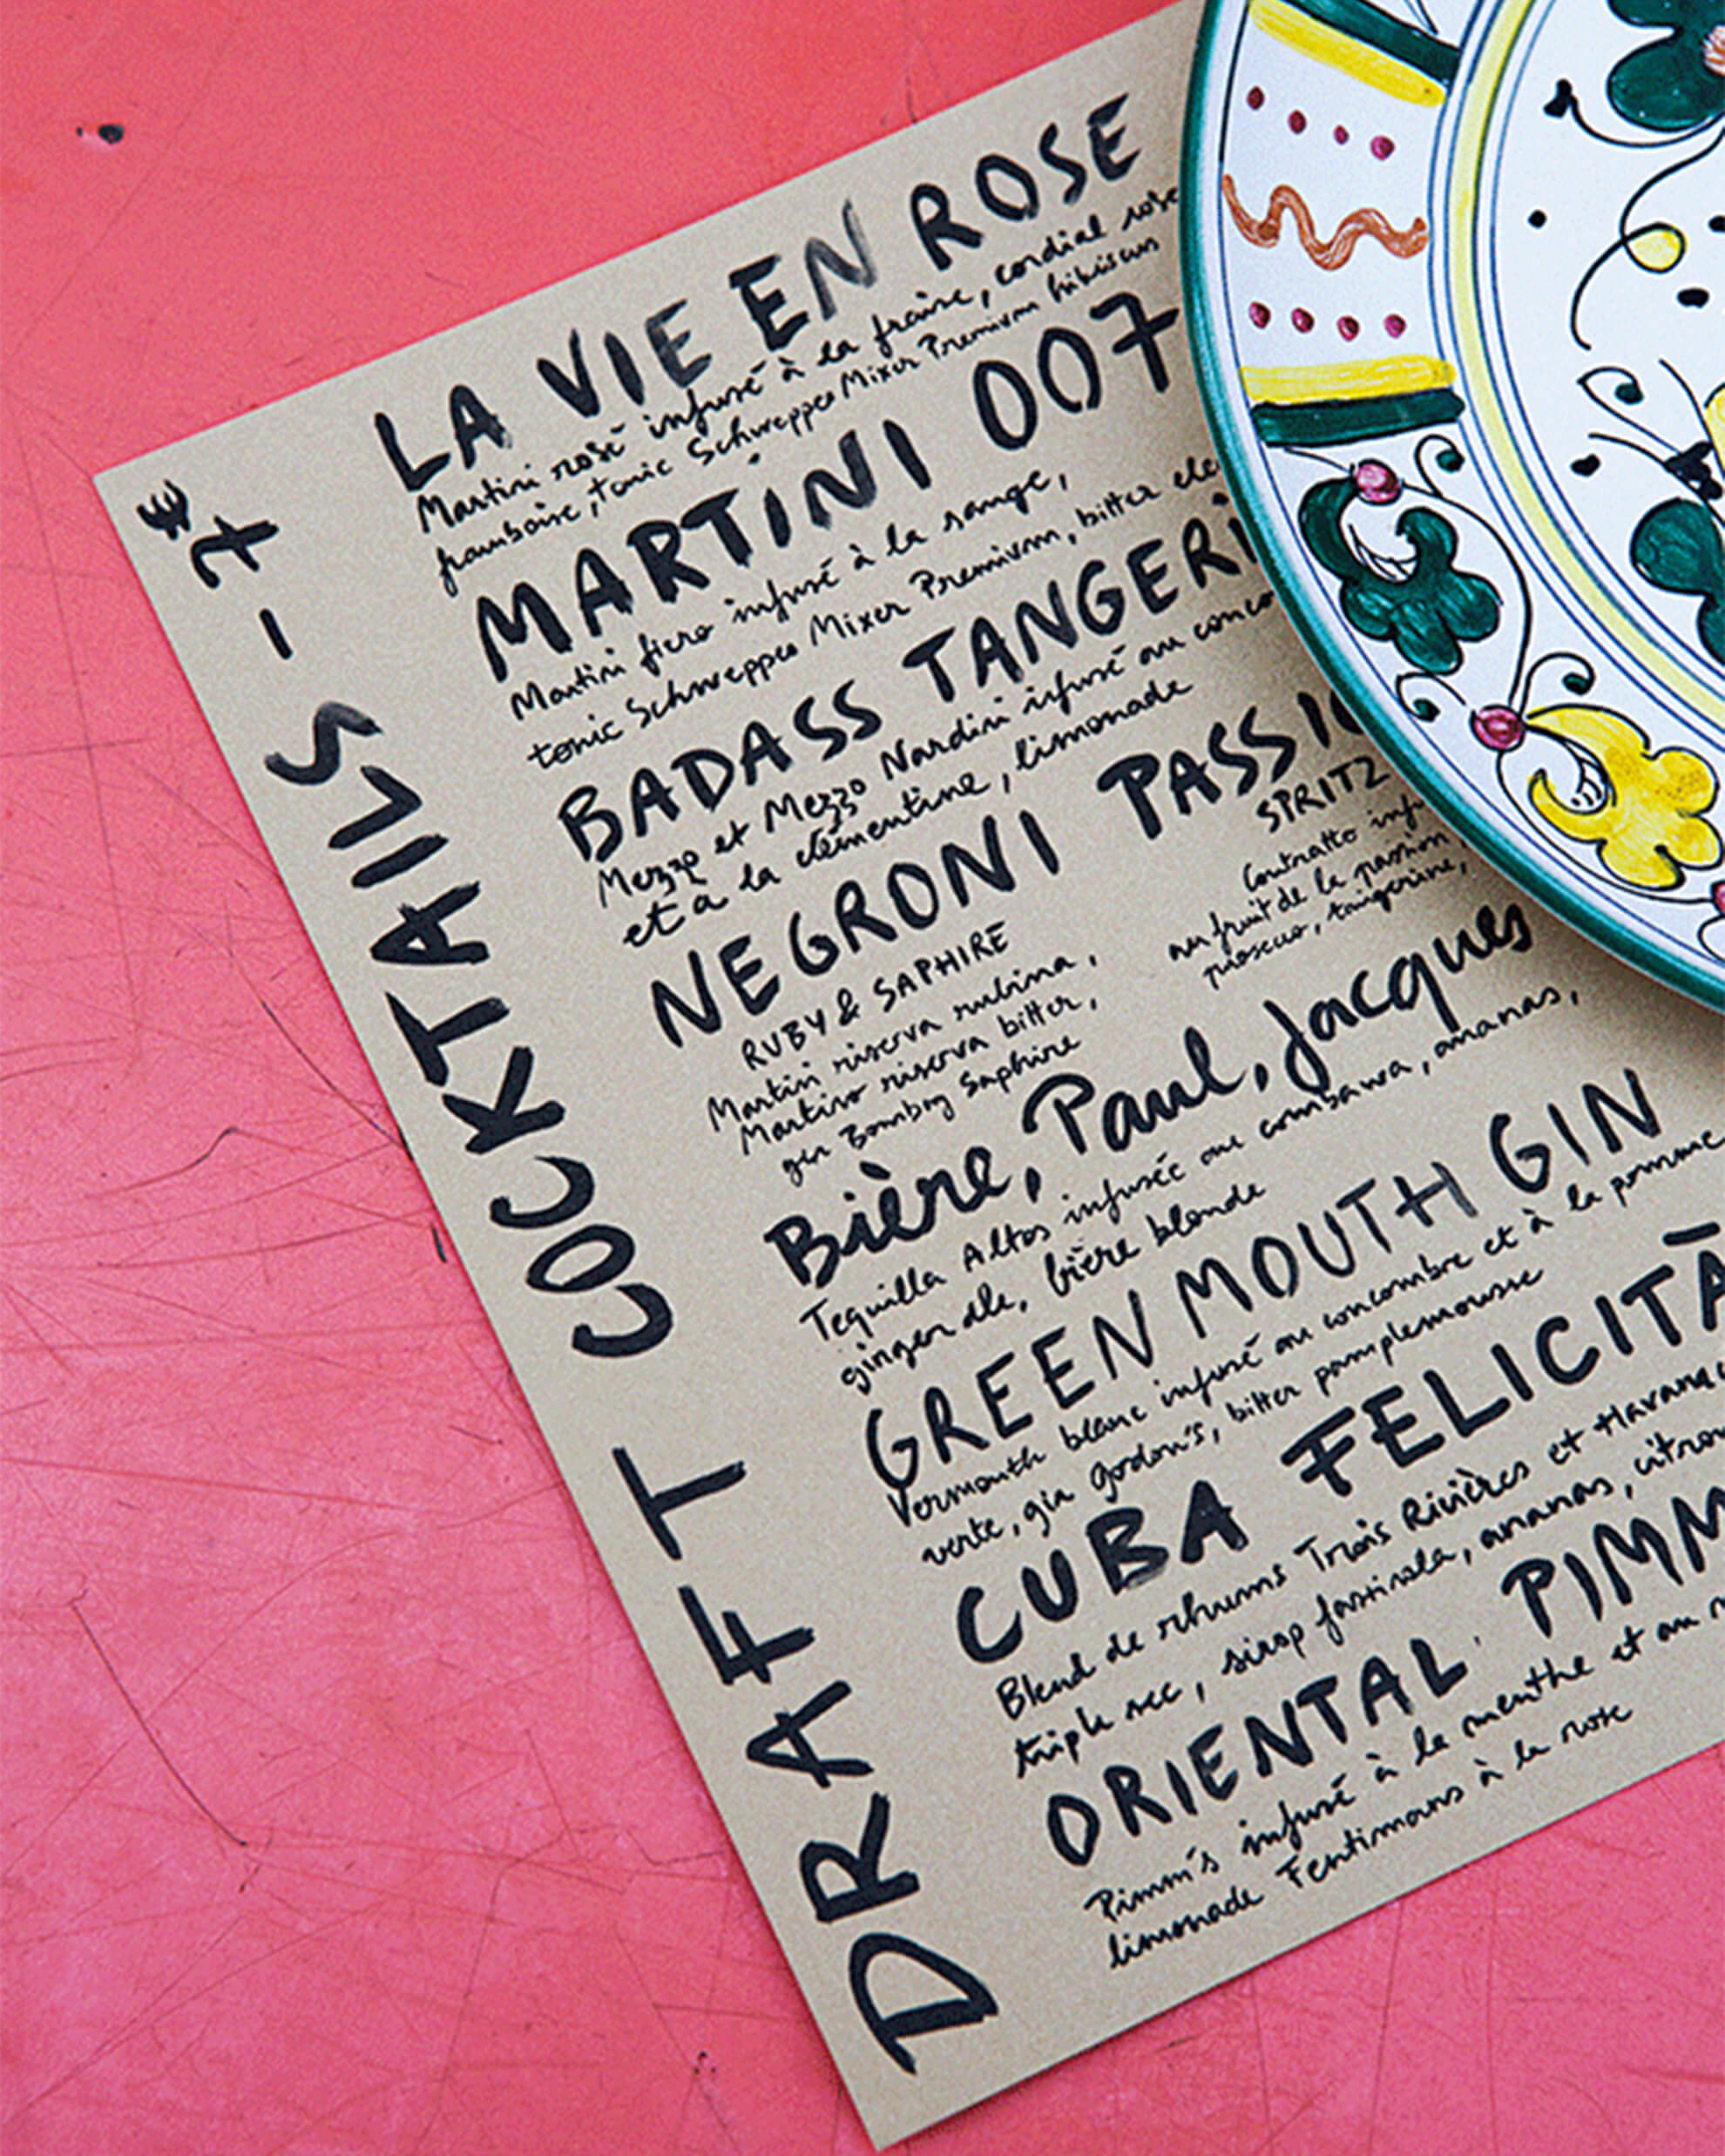 DRAFT COCKTAILS - 7€
LA VIE EN ROSE
Martini rosé infusé à la fraise, cordial rose
framboise, tonic Schweppes Mixer Premium hibiscus
MARTINI 007
Martini fiero infusé à la sauge,
tonic Schweppes Mixer Premium, bitter
BADASS
Mezzo et Mezzo Nardini infusé au
et à la clémentine, limonade
NEGRONI
RUBY & SAPHIRE
Martini riserva rubina,
Martini riserva bitter,
gin Bombay Saphire
SPRITZ
Contratto
au fruit de la passion
prosecco, tangerine,
Bière, Paul, Jacques
Tequilla Altos infusée au combawa, ananas,
ginger ale, bière blonde
GREEN MOUTH GIN
Vermouth blanc infusé au concombre et à la pomme
verte, gin Gordon's, bitter pamplemousse
CUBA FELICITÀ
Blend de rhums Trois Rivières et
triple sec, sirop, ananas,
ORIENTAL
Pimm's infusé à la menthe et au
limonade Fentimans à la rose